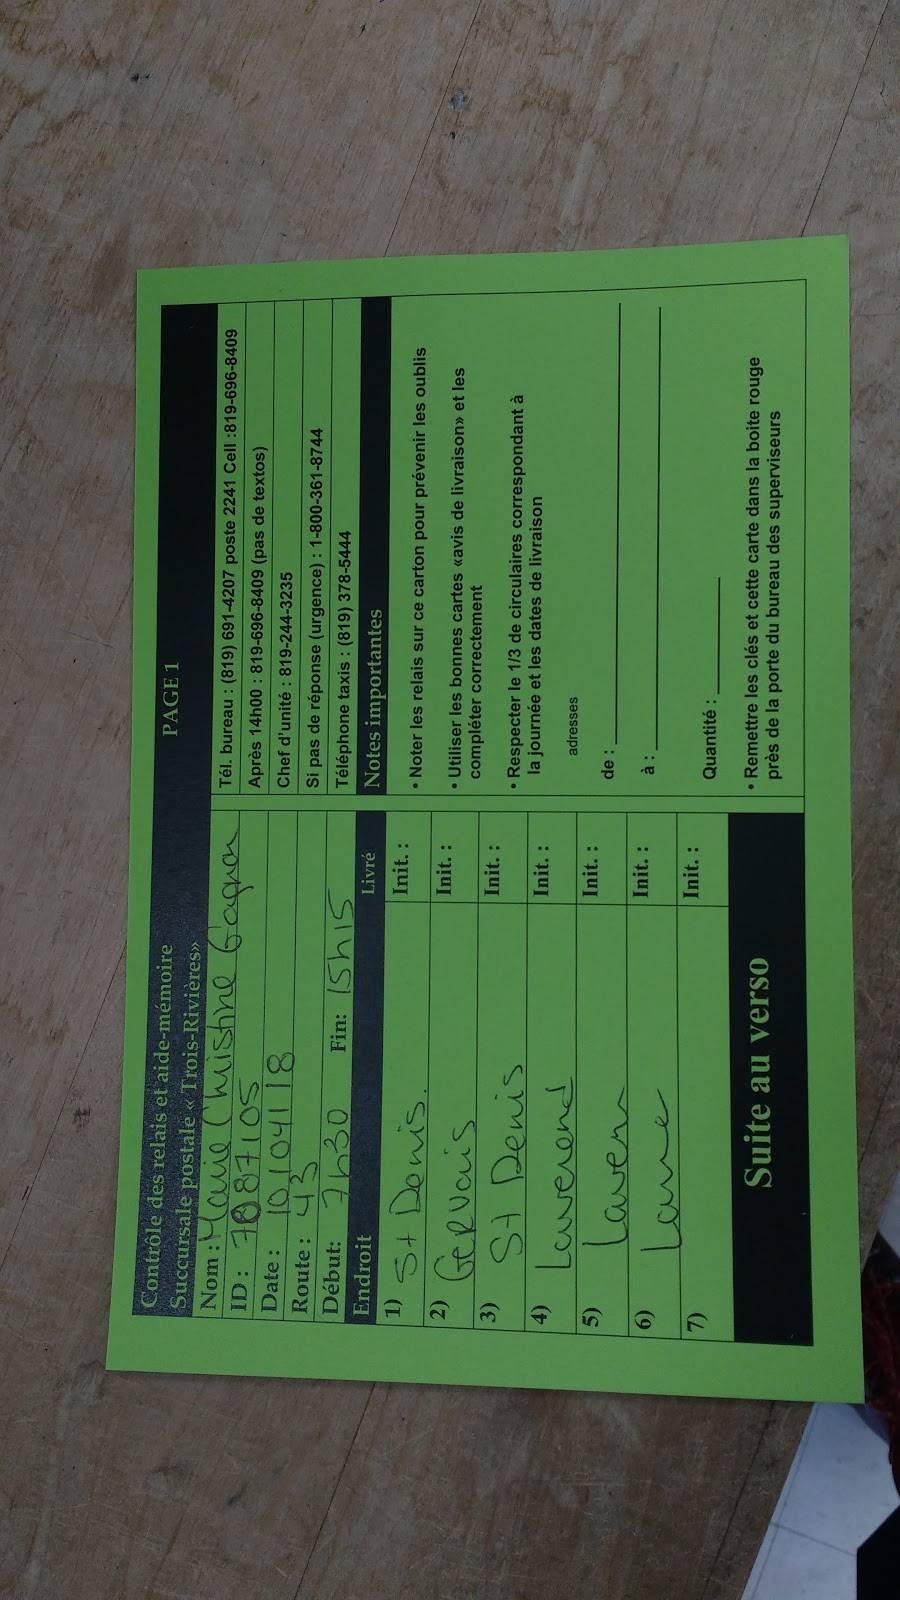 Contrôle des relais et aide-mémoire PAGE 1
Succursale postale « Trois-Rivières»
Nom : Marie Christine Gagnon
ID : 7087105
Date : 10/04/18
Route : 43
Début: 7h30 Fin: 15h15
Endroit Livré
1) St Denis. Init. :
2) Gervais Init. :
3) St Denis Init. :
4) Init. :
5) Init. :
6) Init. :
7) Init. :
Suite au verso
Tél. bureau : (819) 691-4207 poste 2241 Cell :819-696-8409
Après 14h00 : 819-696-8409 (pas de textos)
Chef d'unité : 819-244-3235
Si pas de réponse (urgence) : 1-800-361-8744
Téléphone taxis : (819) 378-5444
Notes importantes
• Noter les relais sur ce carton pour prévenir les oublis
• Utiliser les bonnes cartes «avis de livraison» et les
compléter correctement
• Respecter le 1/3 de circulaires correspondant à
la journée et les dates de livraison
adresses
de :
à :
Quantité :
• Remettre les clés et cette carte dans la boite rouge
près de la porte du bureau des superviseurs